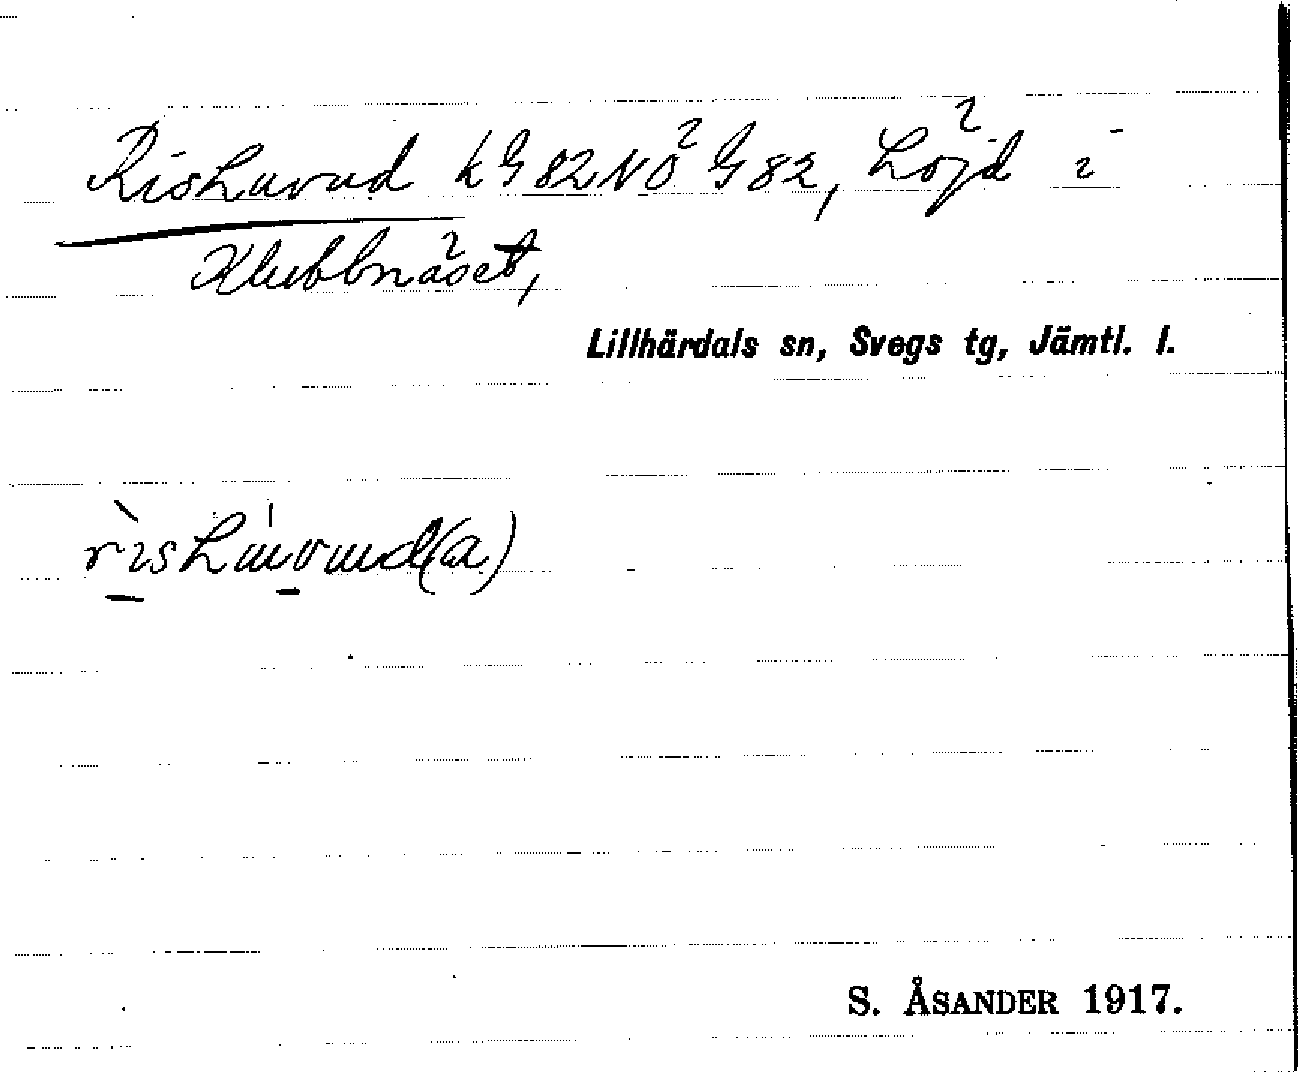 Rishuvud kG82NÖG82, höjd i
Klubbnäset,
Lillhärdals sn, Svegs tg, Jämtl. l.
S. ÅSANDER 1917.